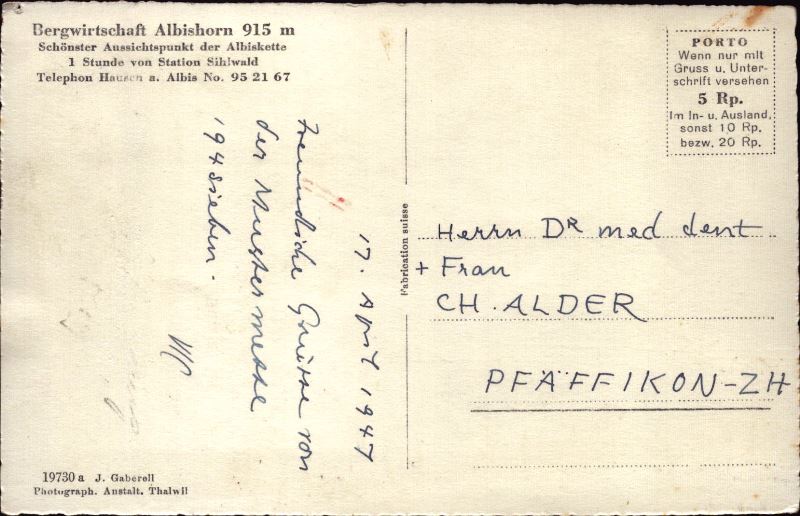 Bergwirtschaft Albishorn 915 m
Schönster Aussichtspunkt der Albiskette
1 Stunde von Station Sihlwald
Telephon Hausen a. Albis No. 95 21 67
PORTO
Wenn nur mit
Gruss u. Unter-
schrift versehen
5 Rp.
Im In- u. Ausland,
sonst 10 Rp.
bezw. 20 Rp.
17. April 1947
Freundliche Grüsse von
der Mustermesse
194sieben.
Fabrication suisse
Herrn DR med dent
+ Frau
CH. ALDER
PFÄFFIKON-ZH
19730 a J. Gaberell
Photograph. Anstalt, Thalwil